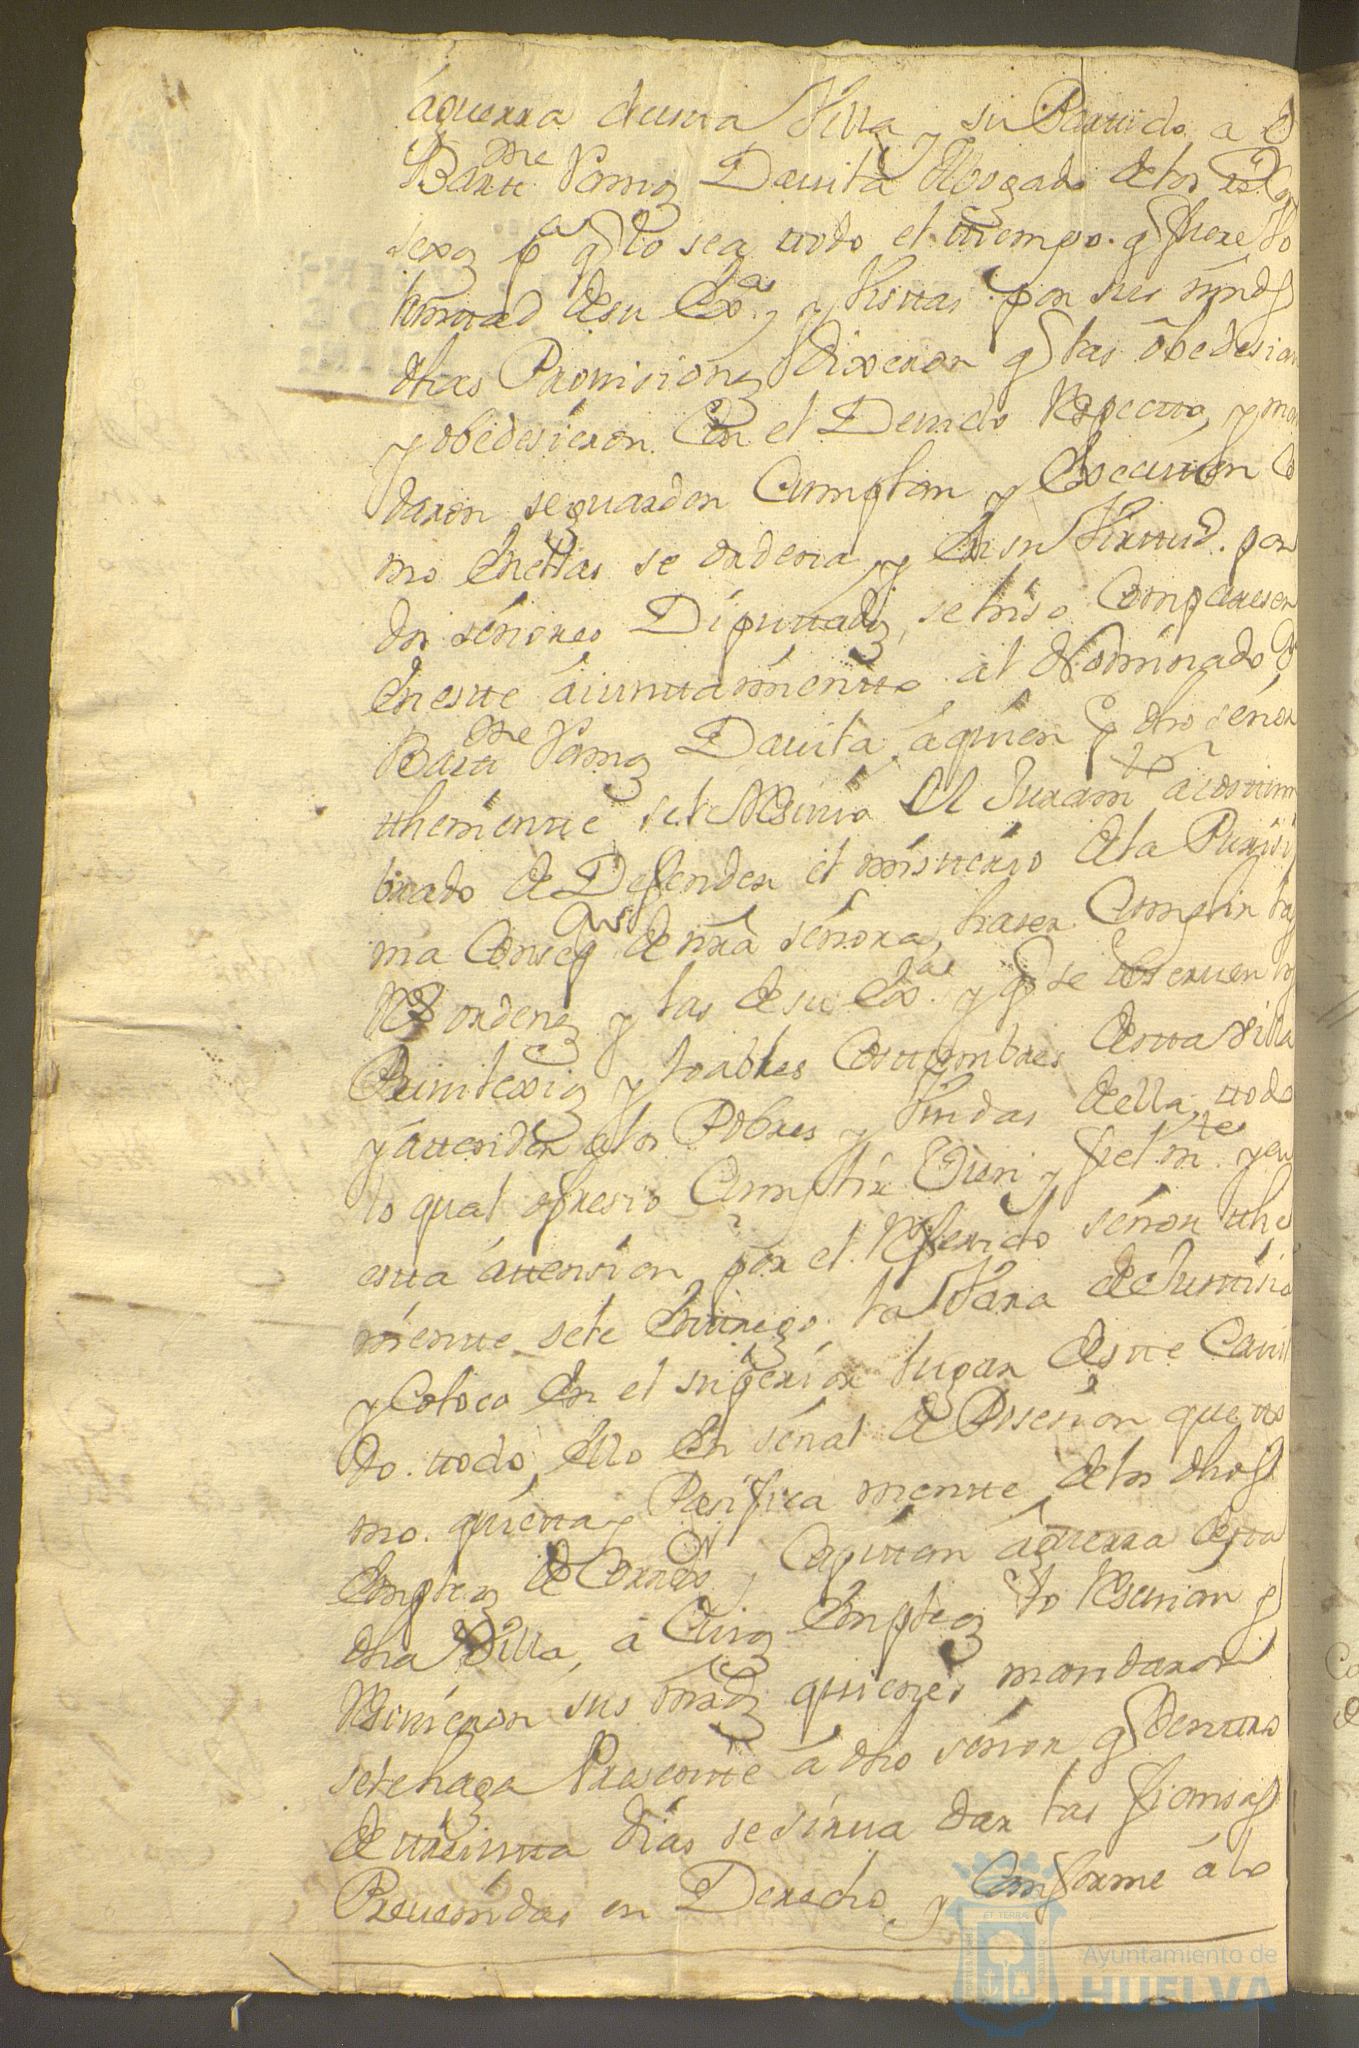 aguerra desta Villa y su Partido a Dn
Bartme Pomz Dauita Abogado delos Rs Con
sexos pa q lo sea ttodo el ttiempo q fuere Vo
lunttad de su Exa y Vistas por sus mrds
dhas Prouisiones dixeron q las obedesian
y obedesieron Con el Deuido Respectto, y man
daron se guarden Cumplan y Executten Co
mo En ellas se ordena, y En su Virttud por
dos señores Diputtados, se hiso Compareser
En este aiunttamientto al Nominado Dn
Bartme Pomz Dauita, a quien p dho señor
thenientte se le Resiuio El Juramto acosttum
brado de Defender el mistterio de la Purisi
ma Consepon de nra señora, haser Cumplir las
Rs ordenes y las de su Exa y q se obseruen los
Priuilexios y loables Costtumbres desta Villa
y attender a los Pobres y Viudas della, ttodo
lo qual ofresio Cumplir Vien y fielmte y en
esta attension por el Referido señor the
nientte se le Enttrego la Vara de Justtisia
y Coloco En el superior lugar deste Cauil
do ttodo Ello En señal de Posesion que tto
mo quietta y Pasificamentte de los dhos
Empleos de Corregor y Capittan aguerra desta
dha Villa, a Cuios Empleos lo Resiuian y
Resiuieron sus mrds quienes mandaron
se le haga Presentte a dho señor q Denttro
de ttreintta dias se sirua dar las fiansas
Preuenidas en Derecho y Conforme a lo
ET TERRA
Ayuntamiento de
HUELVA